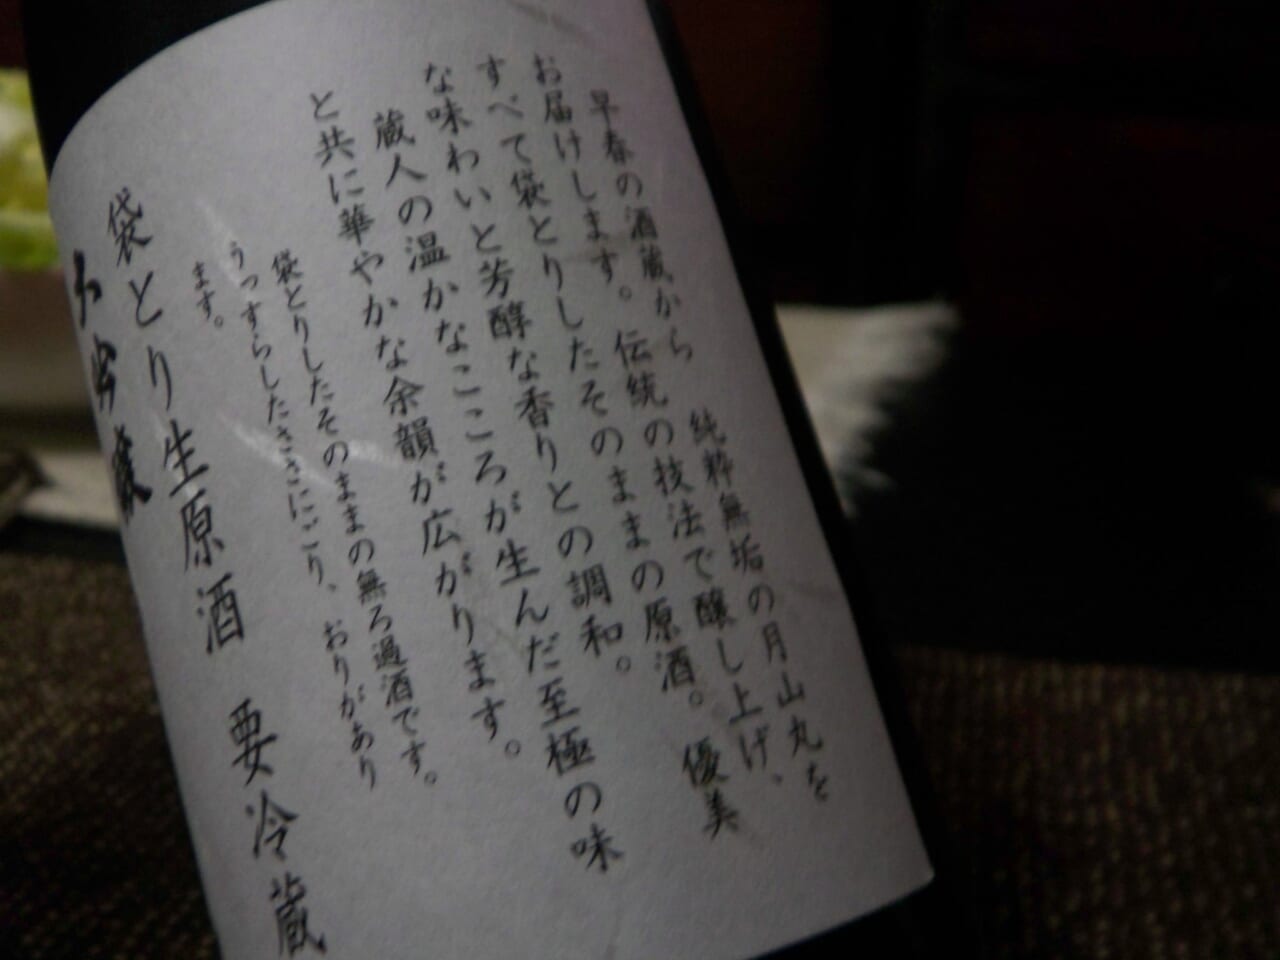 早春の酒蔵から　純粋無垢の月山丸を
お届けします。伝統の技法で醸し上げ、
すべて袋とりしたそのままの原酒。優美
な味わいと芳醇な香りとの調和。
蔵人の温かなこころが生んだ至極の味
と共に華やかな余韻が広がります。
袋とりしたそのままの無ろ過酒です。
うっすらしたささにごり、おりがあり
ます。
袋とり生原酒　要冷蔵
大吟醸